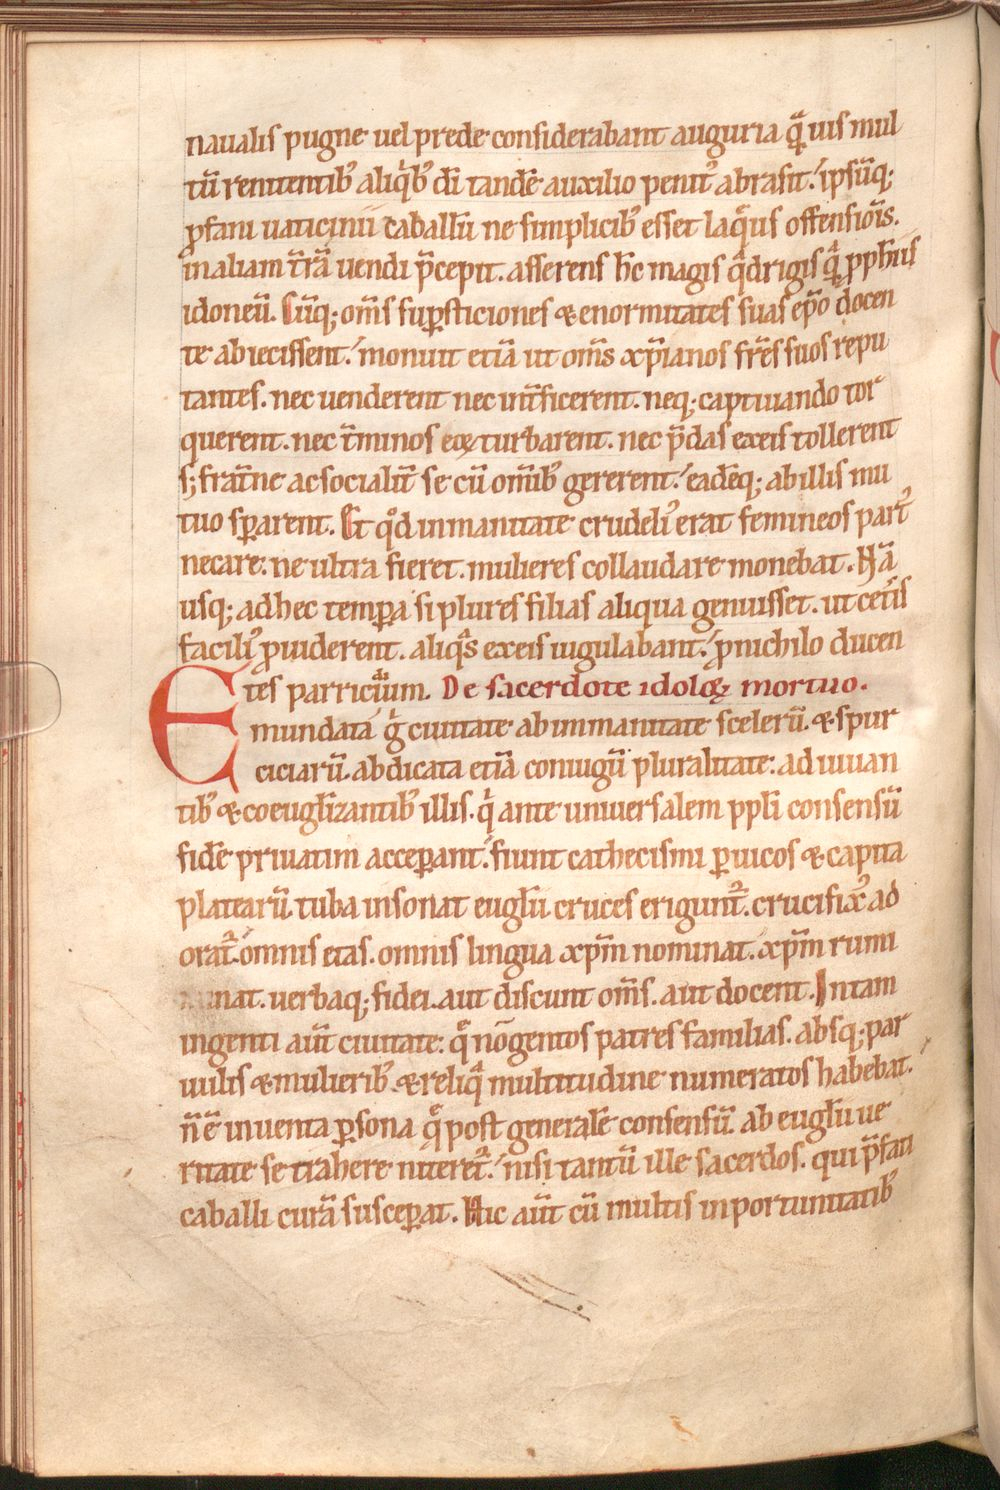 naualis pugne uel prede considerabant auguria qͣuis mul
tū renitentibꝰ aliqͥbꝰ dī tandē auxilio penitꝰ abrasit. ipsūq;
ꝓfani uaticinii caballū ne simplicibꝰ esset laqͤus offensiōis.
in aliam t̄rā uendi p̄cepit. asserens h̄c magis qͣdrigis qͣ̄ pphīis
idoneū. Cūq; om̄s suꝑsticiones & enormitates suas ep̄o docen
te abiecissent. monuit etiā ut om̄s xp̄ianos fr̄es suos repu
tantes. nec uenderent nec int̄ficerent. neq; captiuando tor
querent. nec t̄minos eoꝝ turbarent. nec p̄das ex eis tollerent
s; frat̄ne ac socialit̄ se cū om̄ibꝰ gererent. eadēq; ab illis mu
tuo sꝑarent. Et qͦd inmanitate crudeliꝰ erat femineos partꝰ
necare. ne ultra fieret. mulieres collaudare monebat. Nā
usq; ad hec temꝑa si plures filias aliqua genuisset. ut cet̄is
faciliꝰ ꝓuiderent. aliqͣs ex eis iugulabant. ꝓ nichilo ducen
tes parricidium. De sacerdote idoloꝝ mortuo.
Emundata gͥ ciuitate ab inmanitate scelerū. & spur
ciciarū. abdicata etiā coniugū pluralitate. adiuuan
tibꝰ & coeugl̄izantibꝰ illis. qͥ ante uniuersalem ppl̄i consensū
fidē priuatim acceꝑant. fiunt cathecismi ꝑ uicos & capita
platearū. tuba insonat eugl̄ii cruces erigunt᷑. crucifixꝰ ad
orat᷑. omnis etas. omnis lingua xp̄m nominat. xp̄m rumi
nat. uerbaq; fidei. aut discunt om̄s. aut docent. In tam
ingenti aut̄ ciuitate. qͤ nōgentos patres familias. absq; par
uulis & mulieribꝰ & reliqͣ multitudine numeratos habebat.
n̄ ē inuenta ꝑsona qͤ post generalē consensū. ab eugl̄ii ue
ritate se trahere niteret᷑. nisi tantū ille sacerdos. qui p̄fati
caballi curā susceꝑat. Hic aut̄ cū multis inportunitatibꝰ